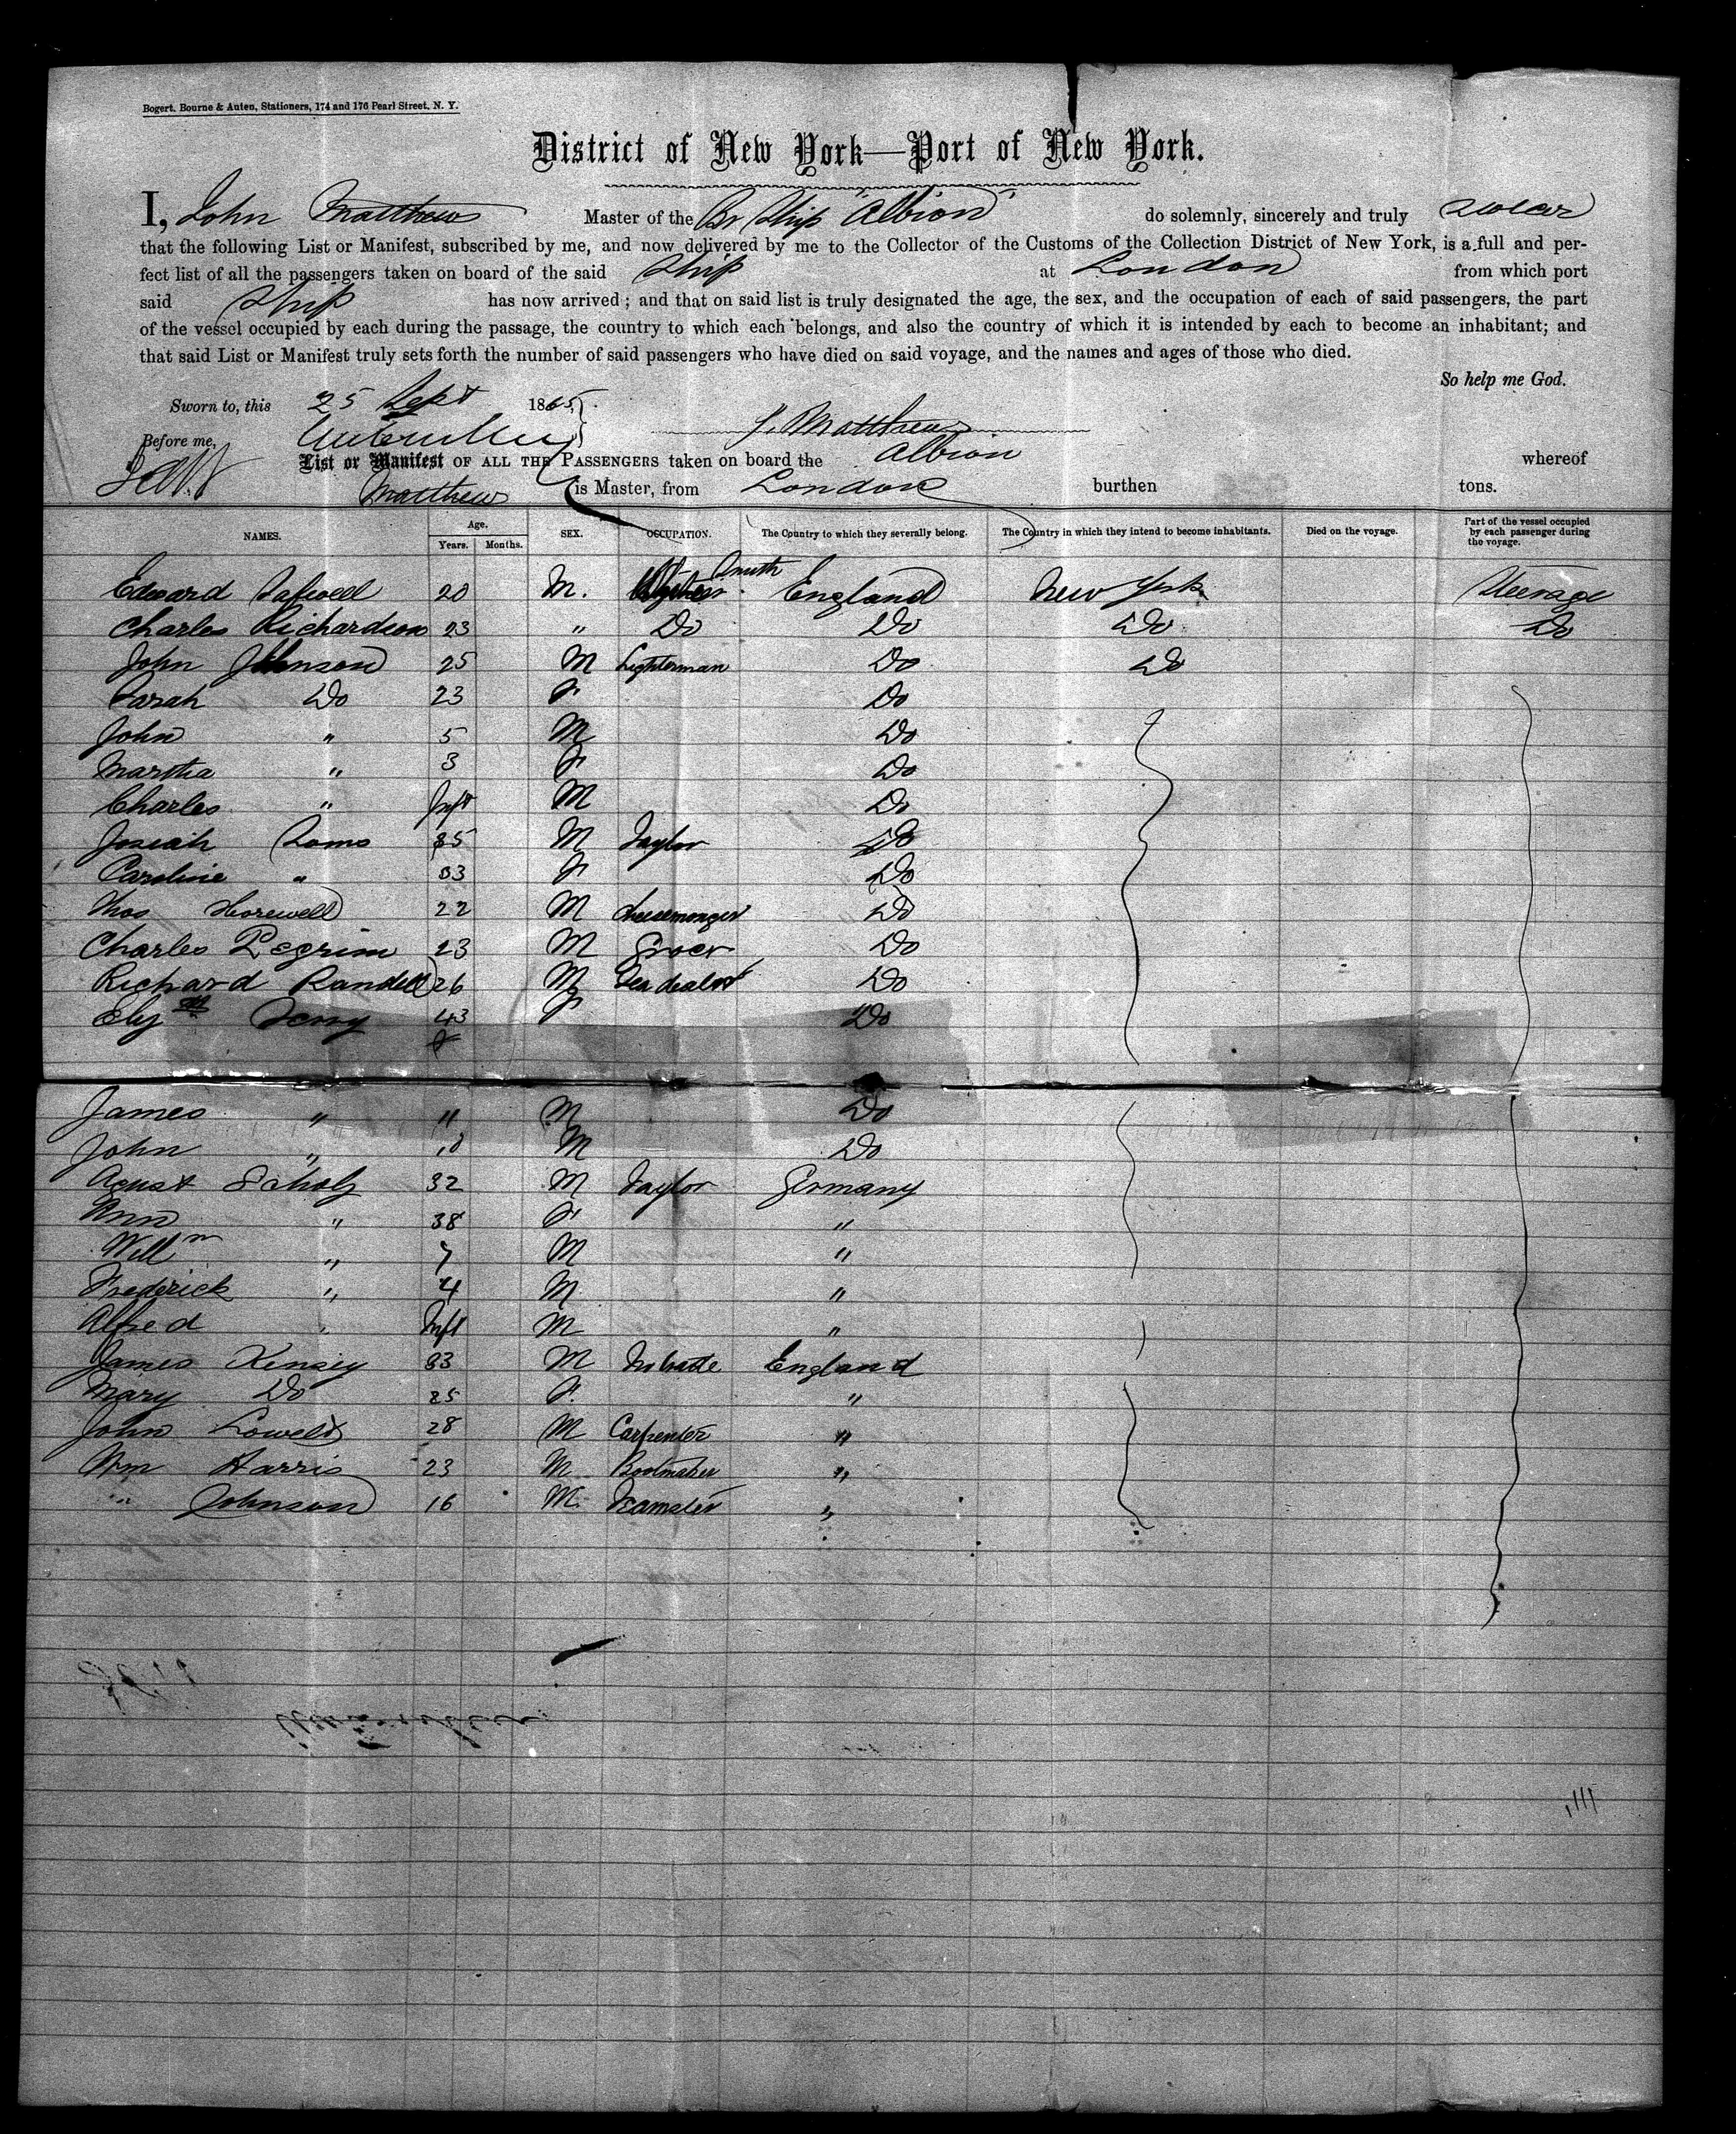 Bogert, Bourne & Auten, Stationers, 174 and 176 Pearl Street, N. Y.
District of New York—Port of New York.
I, John Matthew Master of the Br Ship "Albion" do solemnly, sincerely and truly swear
that the following List or Manifest, subscribed by me, and now delivered by me to the Collector of the Customs of the Collection District of New York, is a full and per-
fect list of all the passengers taken on board of the said Ship at London from which port
said Ship has now arrived; and that on said list is truly designated the age, the sex, and the occupation of each of said passengers, the part
of the vessel occupied by each during the passage, the country to which each belongs, and also the country of which it is intended by each to become an inhabitant; and
that said List or Manifest truly sets forth the number of said passengers who have died on said voyage, and the names and ages of those who died.
So help me God.
Sworn to, this 25 Sept 1865,
J. Matthew
Before me,
List or Manifest OF ALL THE PASSENGERS taken on board the Albion whereof
Matthew is Master, from London burthen tons.
NAMES. Age. Years. Months. SEX. OCCUPATION. The Country to which they severally belong. The Country in which they intend to become inhabitants. Died on the voyage. Part of the vessel occupied by each passenger during the voyage.
Edward 20 M. Smith England New York Steerage
Charles Richardson 23 " Do Do Do Do
John Johnson 25 M Lighterman Do Do
Sarah Do 23 F Do
John " 5 M Do
Martha " 3 F Do
Charles " Inft M Do
Josiah 35 M Taylor Do
Caroline " 33 F Do
Thos Horewell 22 M Cheesemonger Do
Charles Pegrim 23 M Grocer Do
Richard Randell 26 M Tea dealer Do
Elizth 43 F Do
James " 11 M Do
John " 10 M Do
Agust Scholz 32 M Taylor Germany
Ann " 38 F "
Willm " 7 M "
Frederick " 4 M "
Alfred " Inft M "
James Kensey 33 M England
Mary Do 25 F. "
John 28 M Carpenter "
Wm Harris 23 M Bootmaker "
" Johnson 16 M Teamster "